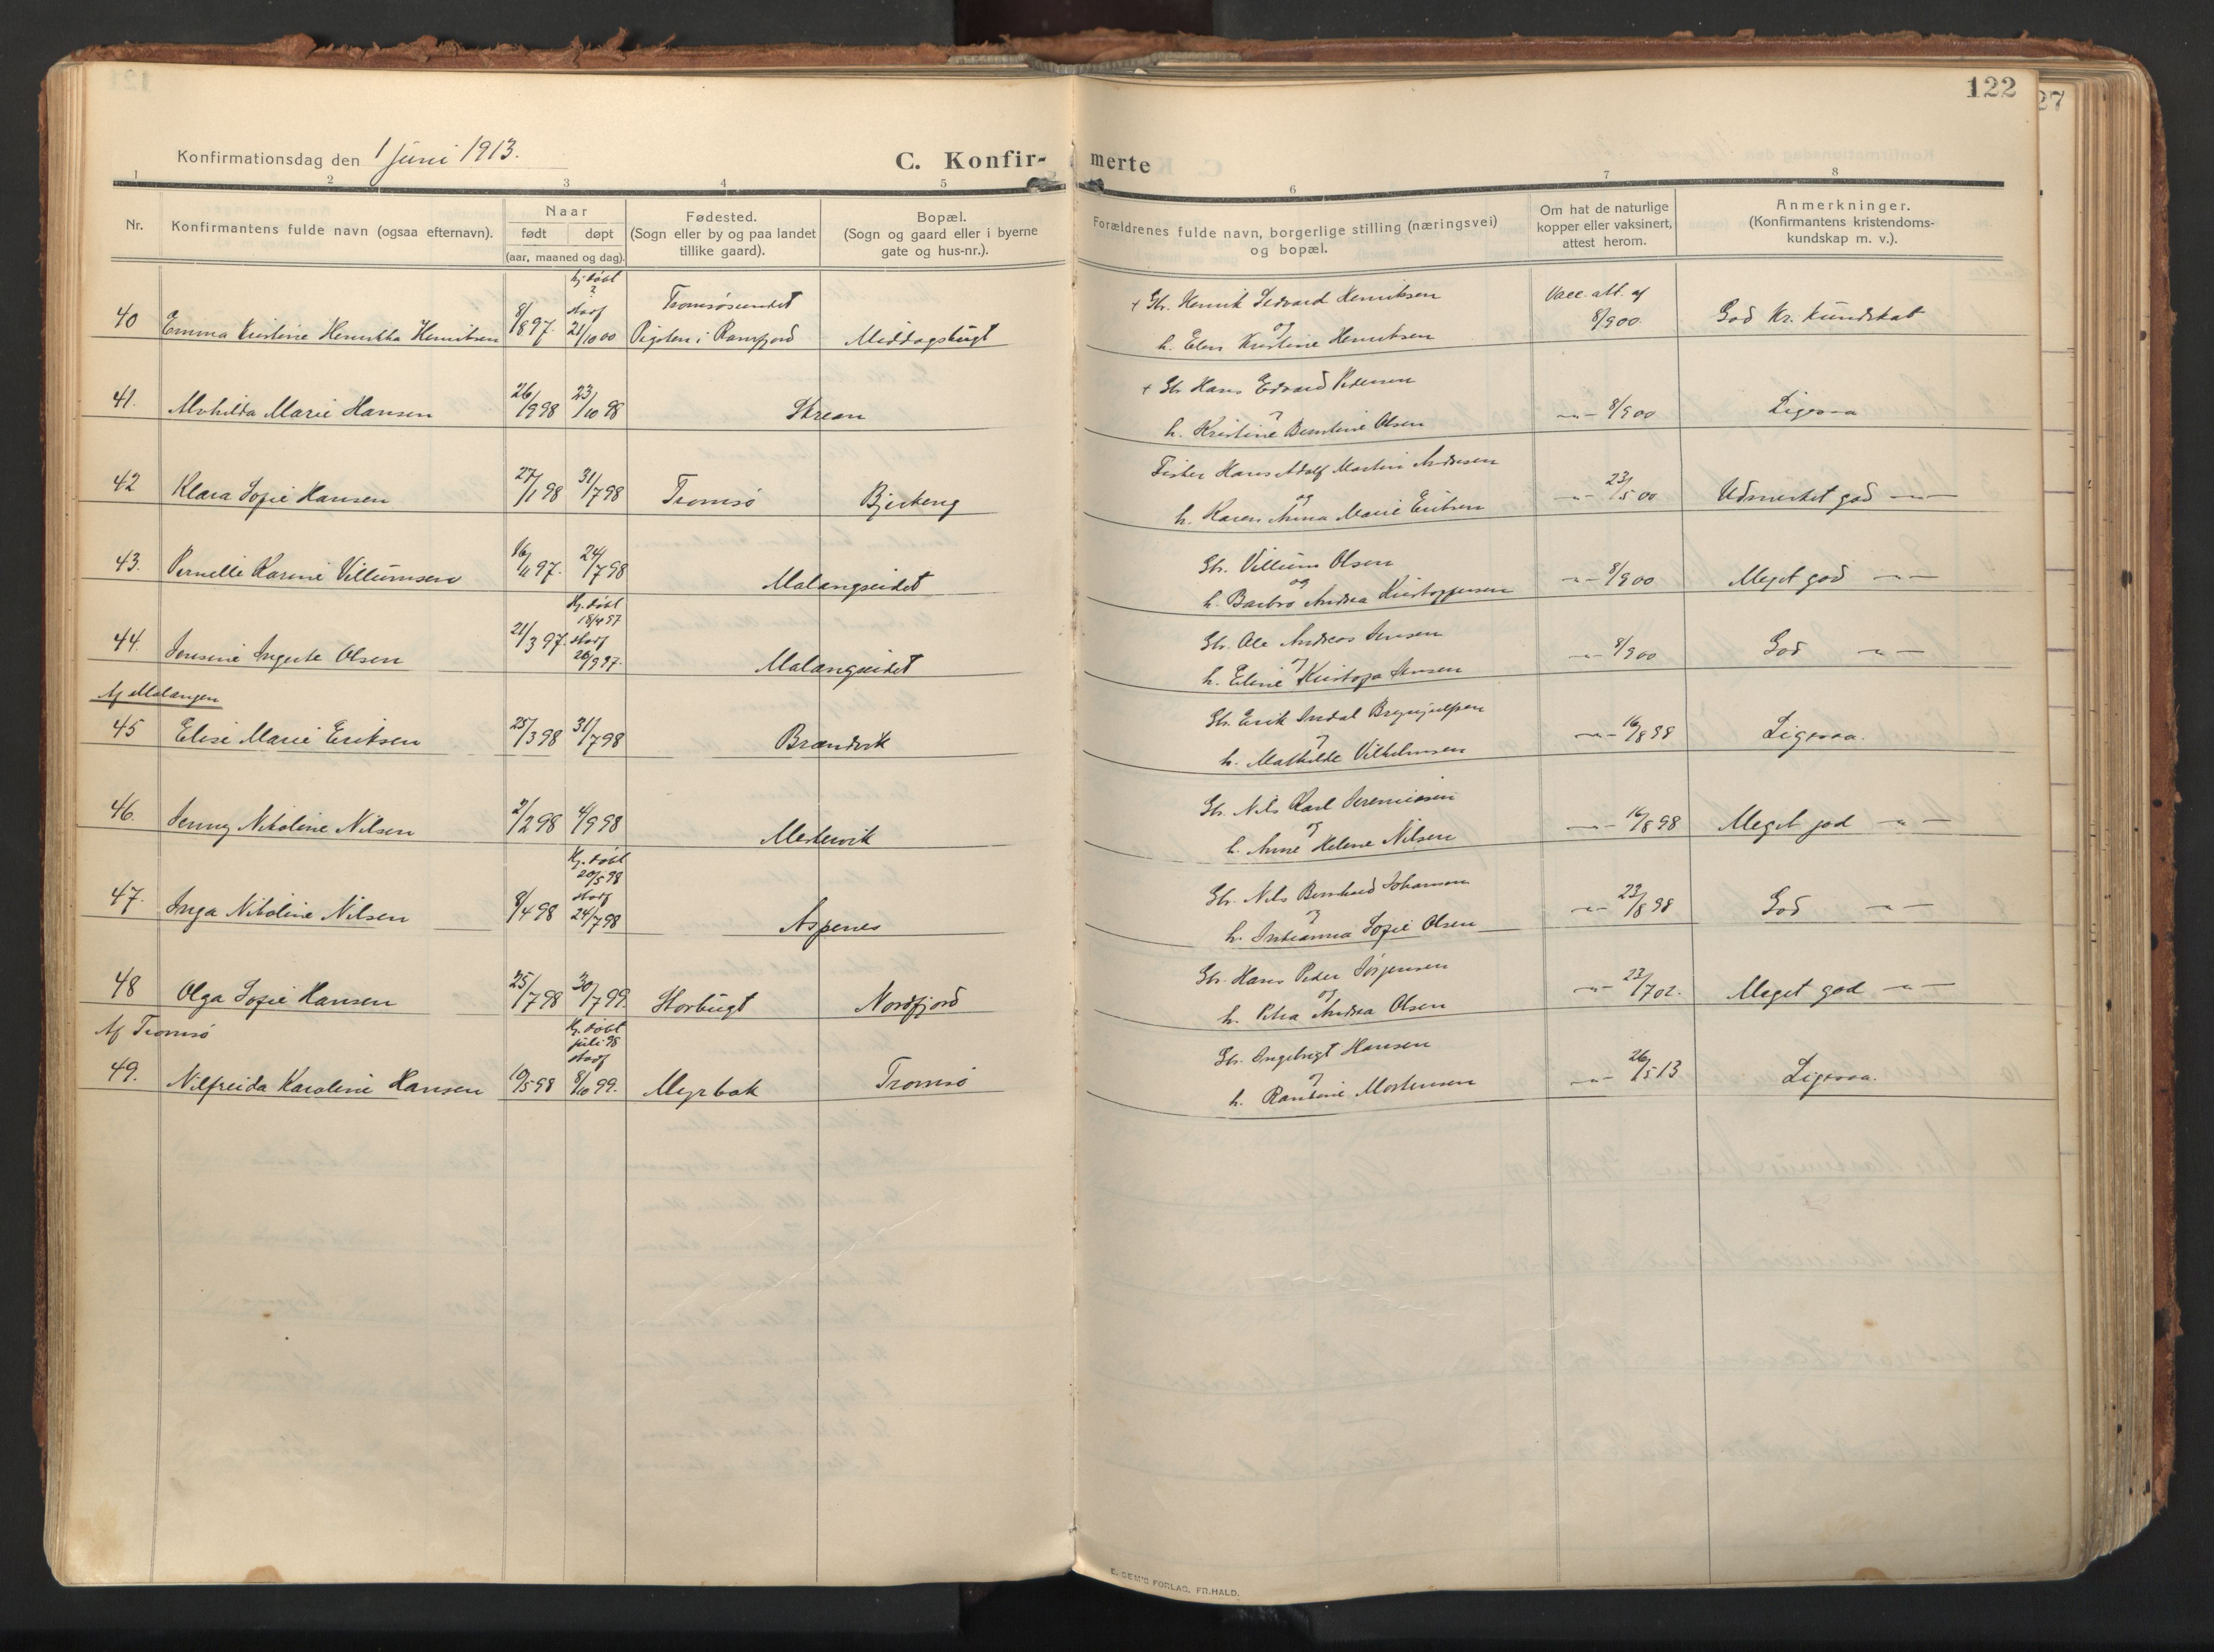 122
27
Konfirmationsdag den 1 juni 1913.
C. Konfir- merte
1 2 3 4 5 6 7 8
Nr.
Konfirmantens fulde navn (ogsaa efternavn).
Naar
født døpt
(aar, maaned og dag).
Fødested.
(Sogn eller by og paa landet
tillike gaard).
Bopæl.
(Sogn og gaard eller i byerne
gate og hus-nr.).
Forældrenes fulde navn, borgerlige stilling (næringsvei)
og bopæl.
Om hat de naturlige
kopper eller vaksinert,
attest herom.
Anmerkninger.
(Konfirmantens kristendoms-
kundskap m. v.).
hj. døbt
?
stadf
40 Emma Kristine Henrikka Henriksen 8/8 97. 21/10 00 Tromsøsundet
i Ramfjord Middagsbugt
+ Gbr. Henrik Edvard Henriksen
og
h. Elen Kristine Henriksen
Vacc. att. af
8/9 00. God Kr. kundskab
41. Mathilda Marie Hansen 26/9 98 23/10 98 Strean
+ Gbr Hans Edvard Pedersen
og
h. Kristine Berntine Olsen
-"- 8/9 00 Ligesaa
42 Klara Sofie Hansen 27/1 98 31/7 98 Tromsø Bjerkeng
Fisker Hans Adolf Martin Andresen
og
h. Karen Anna Marie Eriksen
-"- 23/5 00 Udmerket god -"-
43. Pernelle Karine Villumsen 16/11 97. 24/7 98 Malangseidet
Gbr. Villum Olsen
og
h. Barbro Andrea Kristoffersen
-"- 8/9 00 Meget god -"-
Hj. døbt
18/4 97
stadf
44. Jensine Ingerte Olsen 21/3 97. 26/9 97. Malangseidet
Gbr. Ole Andreas Jensen
og
h. Eline Kristofa Jensen
-"- 8/9 00 God -"-
Af Malangen
45 Elise Marie Eriksen 25/3 98 31/7 98 Brændvik
Gbr. Erik Indal Brynjulfsen
og
h. Mathilde Vilhelmsen
-"- 16/8 98 Ligesaa.
46. Jenny Nikoline Nilsen 2/2 98 4/9 98 Mestervik
Gbr. Nils Karl Jeremiasen
og
h. Anne Helene Nilsen
-"- 16/8 98 Meget god -"-
Hj. døbt
20/5 98
stadf
47. Inga Nikoline Nilsen 8/4 98 24/7 98 Aspenes
Gbr. Nils Bernhard Johansen
og
h. Sofie Olsen
-"- 23/8 98 God -"-
48 Olga Sofie Hansen 25/7 98 30/7 99. Storbugt Nordfjord
Gbr. Hans Peder Jørgensen
og
h. Petra Andrea Olsen
-"- 23/7 02. Meget god -"-
Af Tromsø
Hj. døbt
juli 98
stadf
49. Nilfreida Karoline Hansen 19/5 98 8/10 99. Myrbak Tromsø
Gbr. Ingebrigt Hansen
og
h. Mortensen
-"- 26/5 13 Ligesaa.
E. SEM'S FORLAG, FR.HALD.